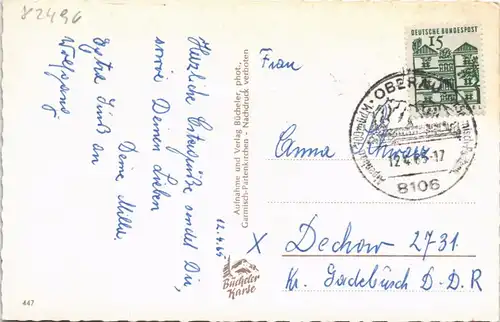 82496
Herzliche Ostergrüße sendet Dir,
sowie Deinen Lieben
Deine Milly.
Extra Gruß an
Wolfgang
12.4.65
Aufnahme und Verlag Bücheler, phot.,
Garmisch-Partenkirchen - Nachdruck verboten
Bücheler
Karte
447
DEUTSCHE BUNDESPOST
15
12.4.65-17
8106
Frau
Anna
X Dechow 2731
Kr. Gadebusch D.D.R